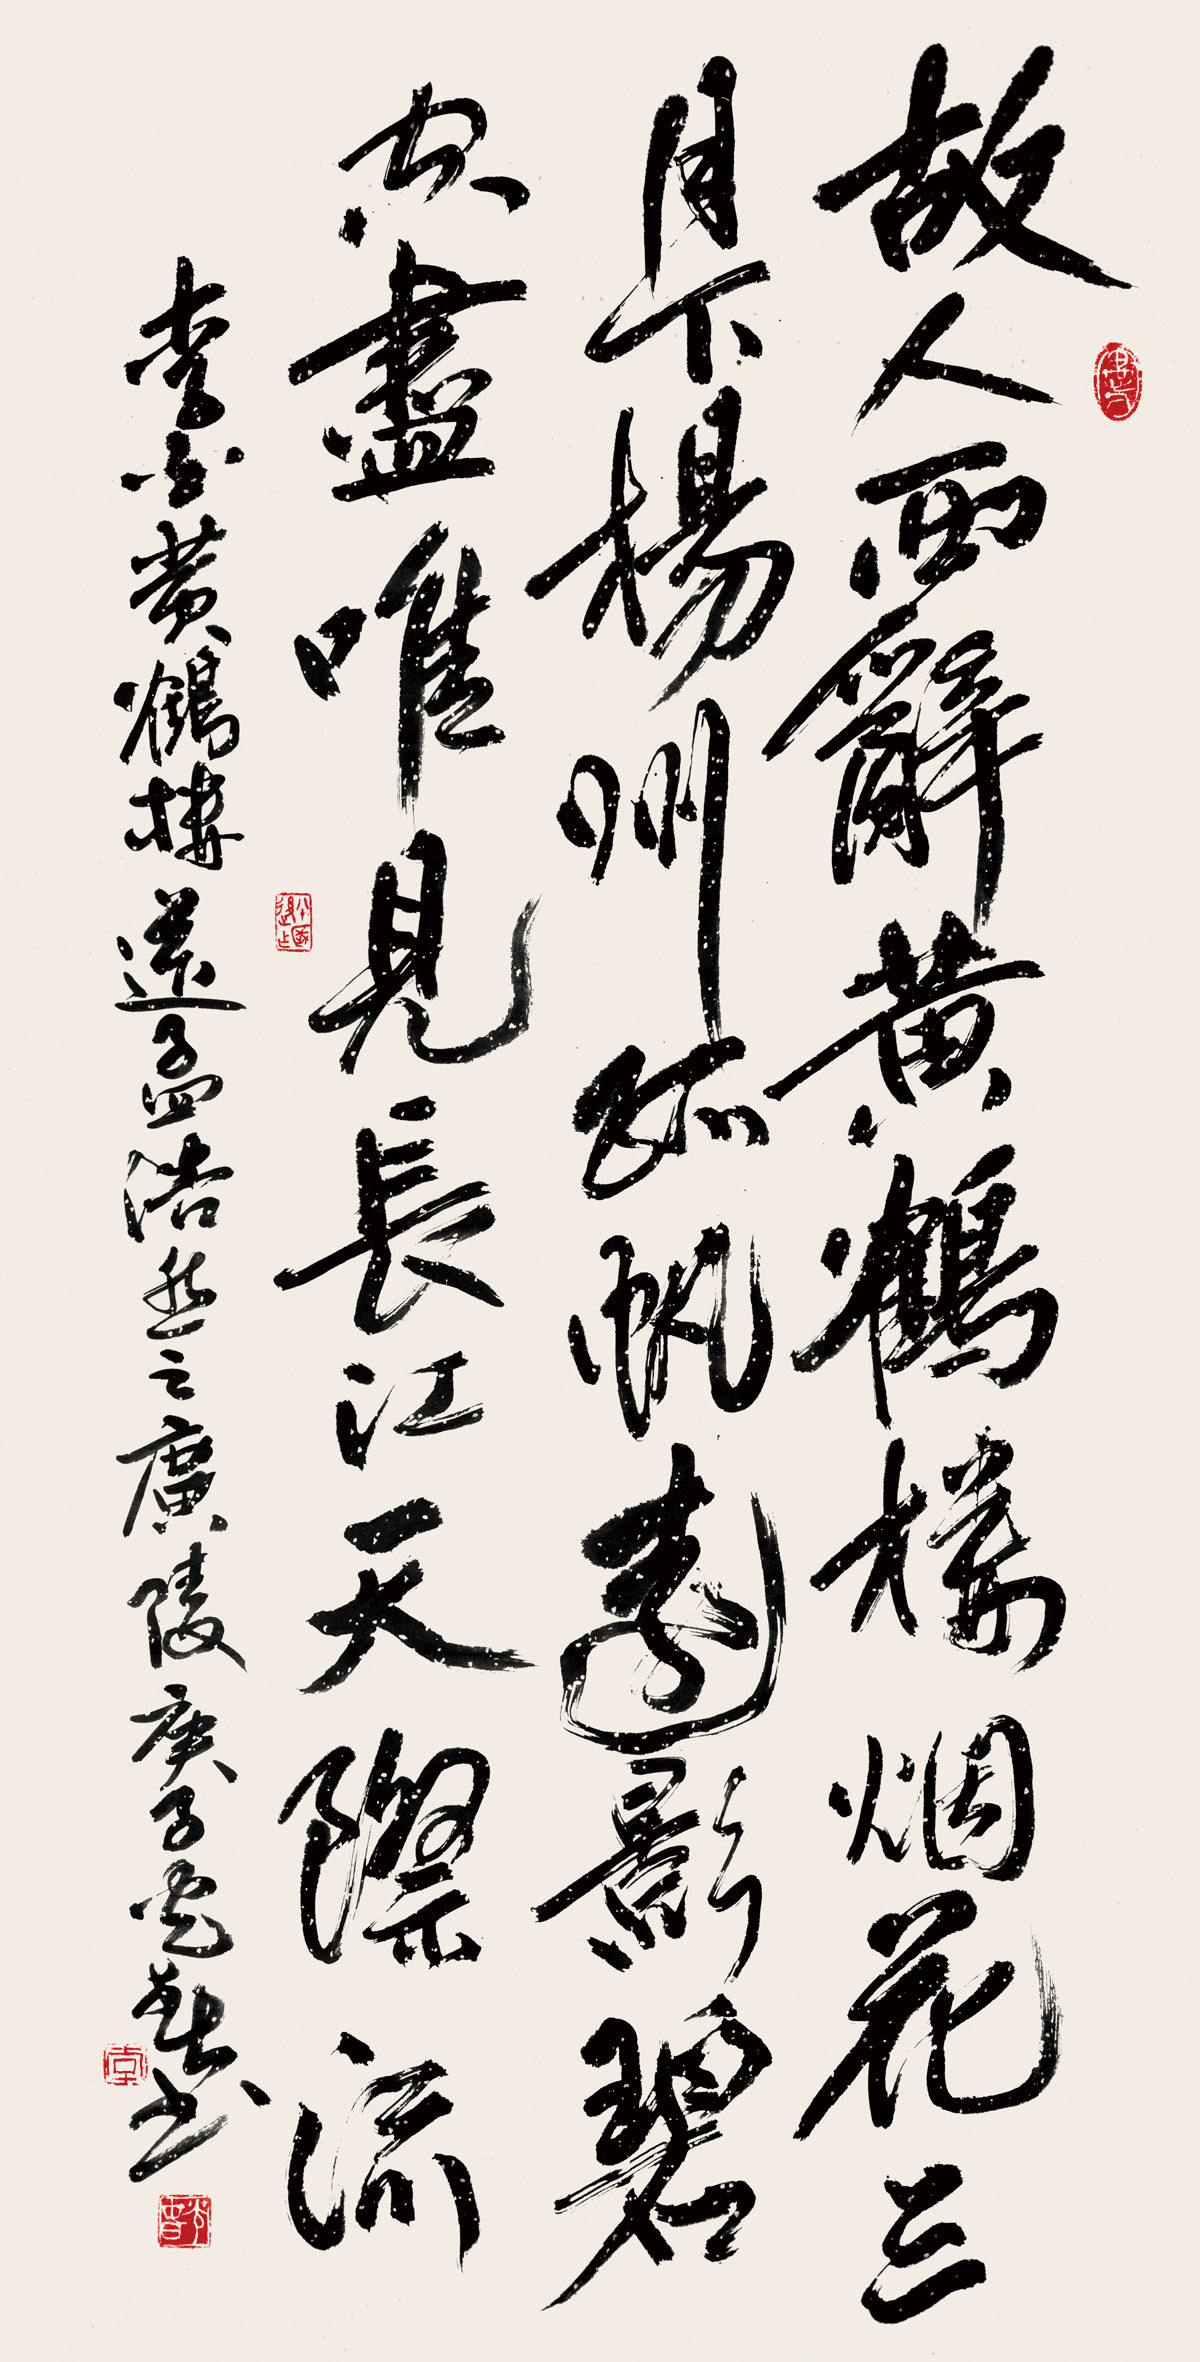 故人西辭黄鶴樓烟花三
月下揚州孤帆遠影碧
空盡唯見長江天際流
李白黄鶴樓送孟浩然之廣陵庚子 書